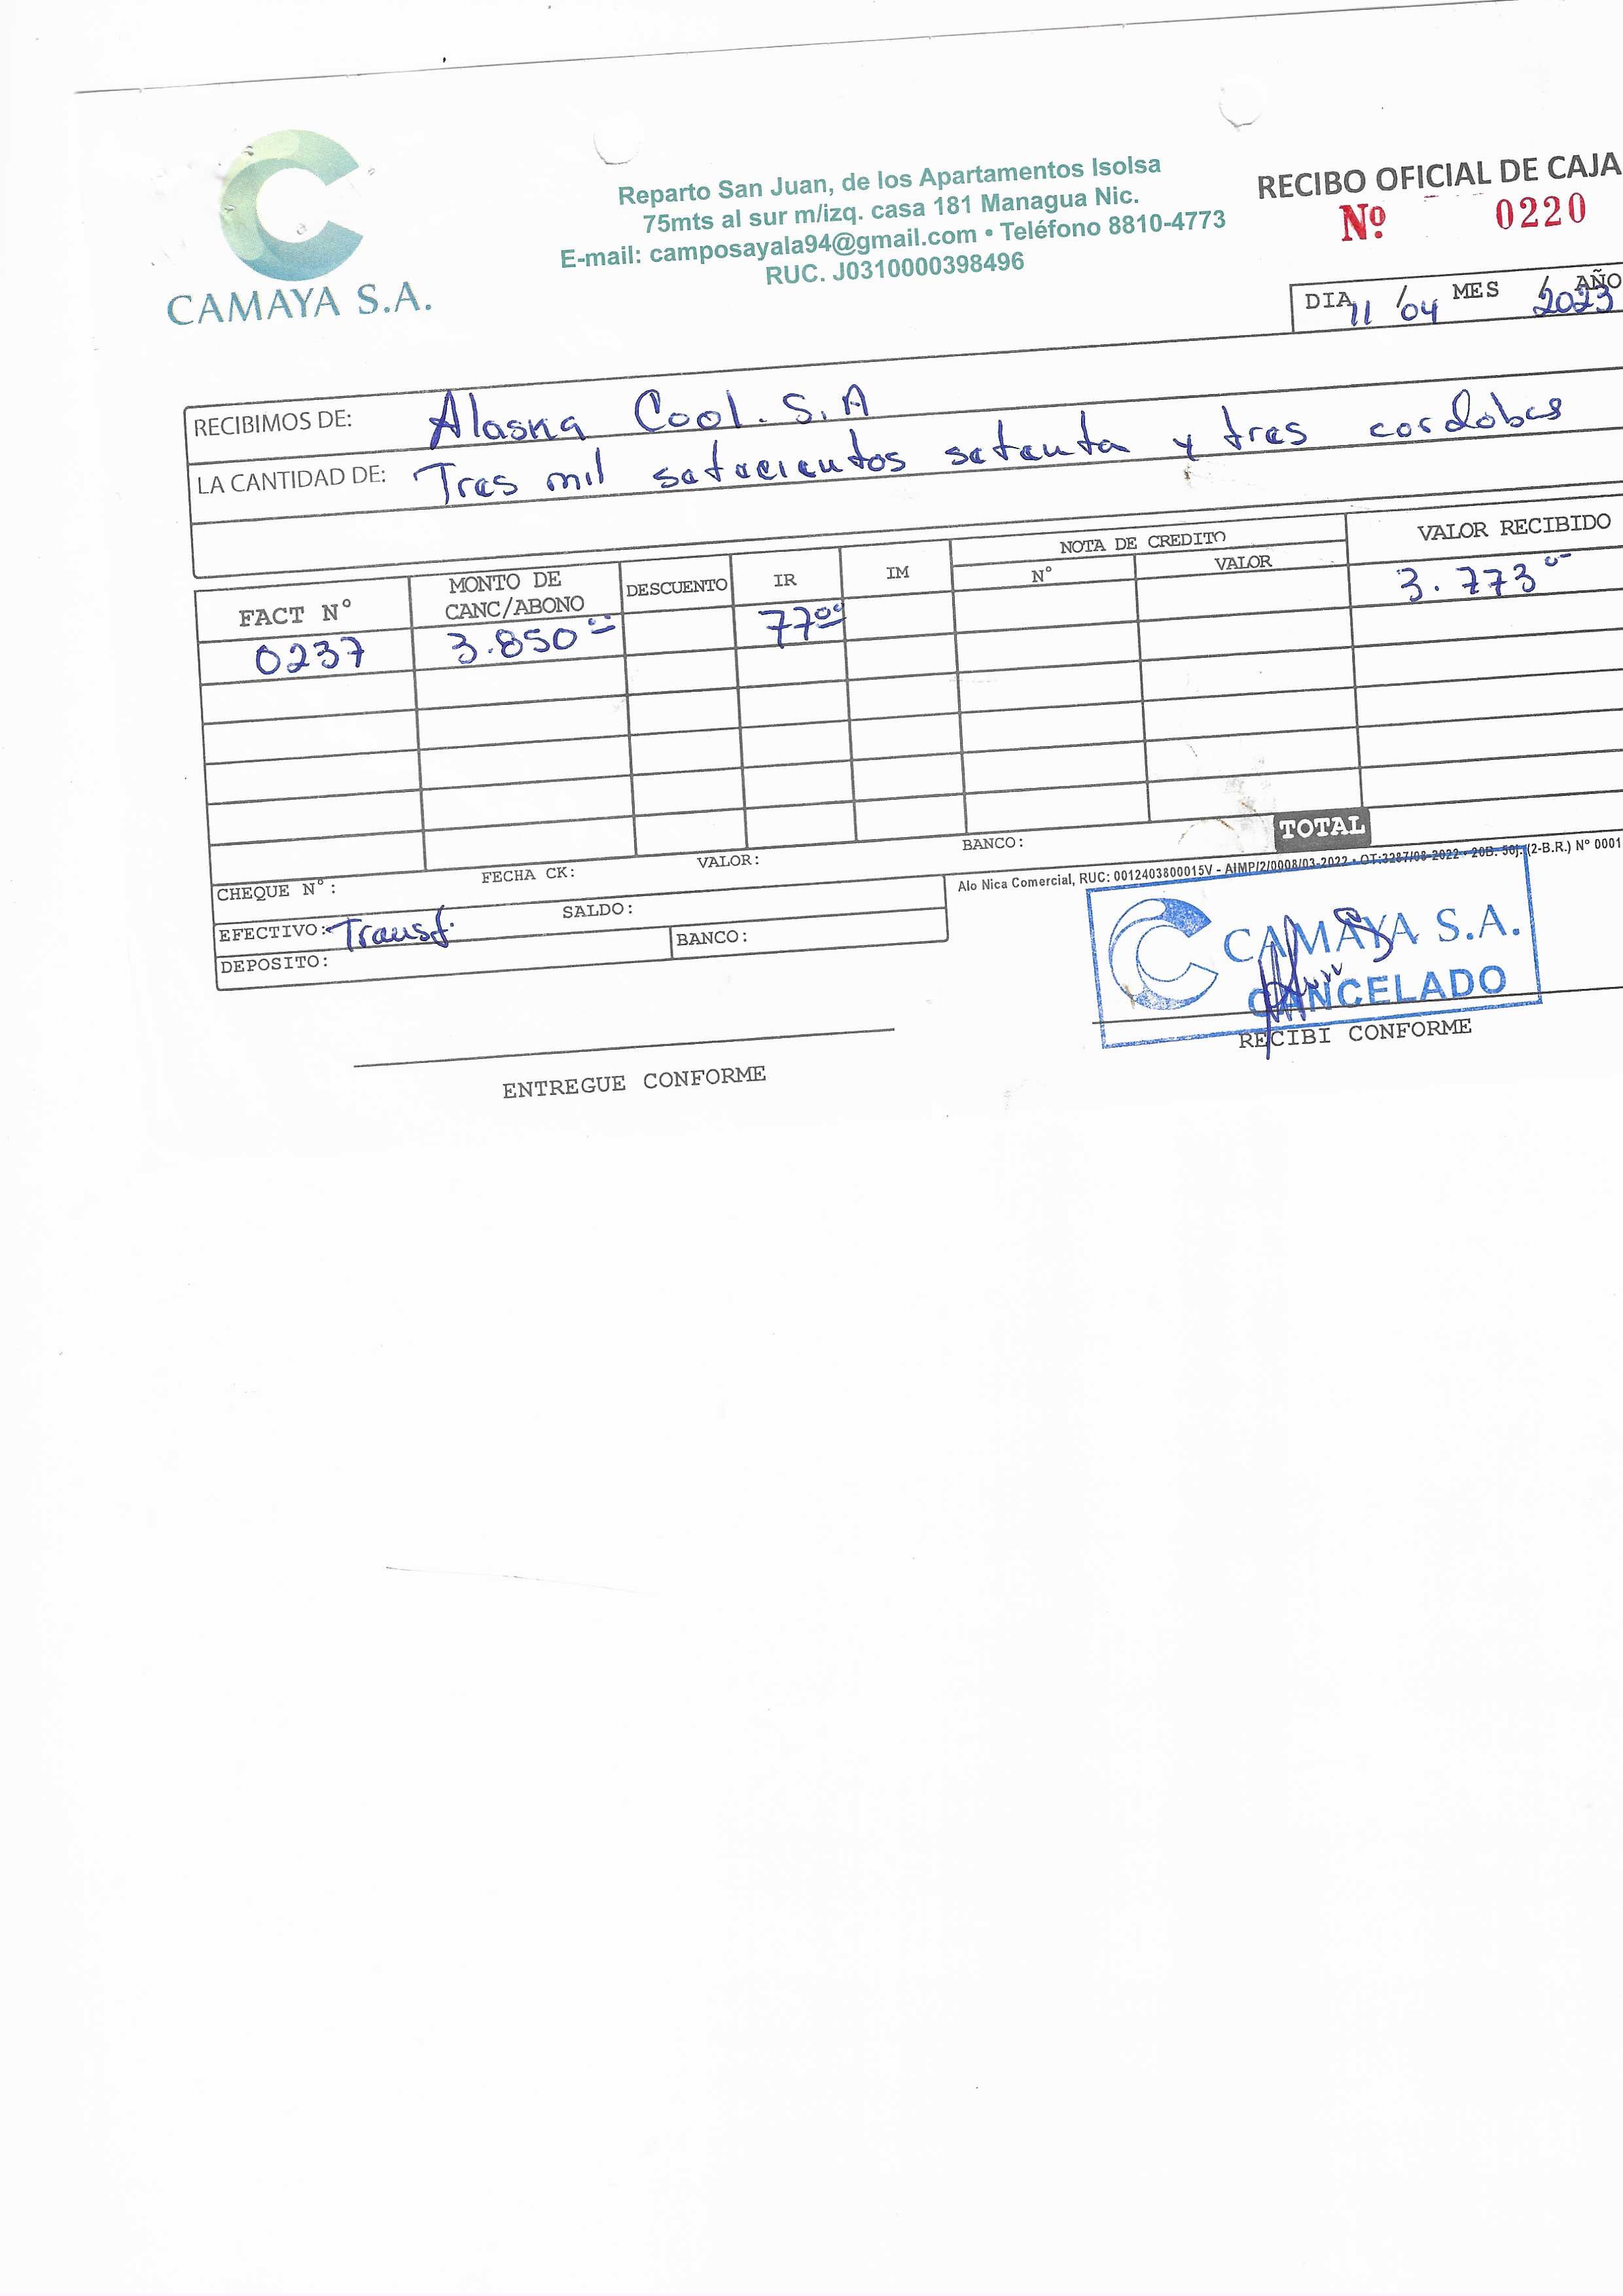 CAMAYA S.A.
Reparto San Juan, de los Apartamentos Isolsa
75mts al sur m/izq. casa 181 Managua Nic.
E-mail: camposayala94@gmail.com • Teléfono 8810-4773
RUC. J0310000398496
RECIBO OFICIAL DE CAJA
Nº 0220
DIA MES AÑO
11 / 04 / 2023
RECIBIMOS DE: Alaska Cool. S.A
LA CANTIDAD DE: Tres mil setecientos setenta y tres cordobas
FACT N° MONTO DE CANC/ABONO DESCUENTO IR IM NOTA DE CREDITO N° VALOR VALOR RECIBIDO
0237 3.850 00 77 00 3.773 00
TOTAL
CHEQUE N°: FECHA CK: VALOR: BANCO:
EFECTIVO: Transf. SALDO:
DEPOSITO: BANCO:
Alo Nica Comercial, RUC: 0012403800015V - AIMP/2/0008/03-2022 • OT:3287/08-2022 • 20B. 50j. (2-B.R.) N° 0001
CAMAYA S.A.
CANCELADO
ENTREGUE CONFORME
RECIBI CONFORME